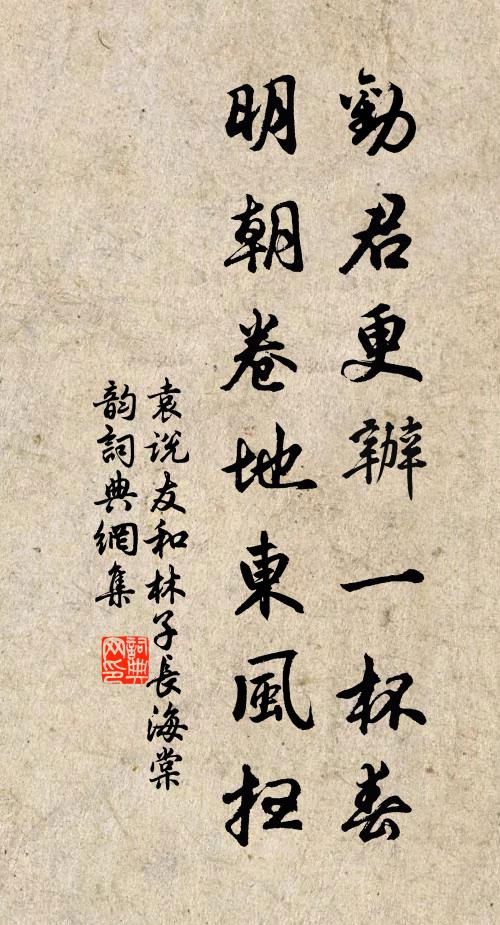 勸君更辦一杯春
明朝卷地東風狂
袁説友和林子長海棠
韵詞典網集
詞典網印